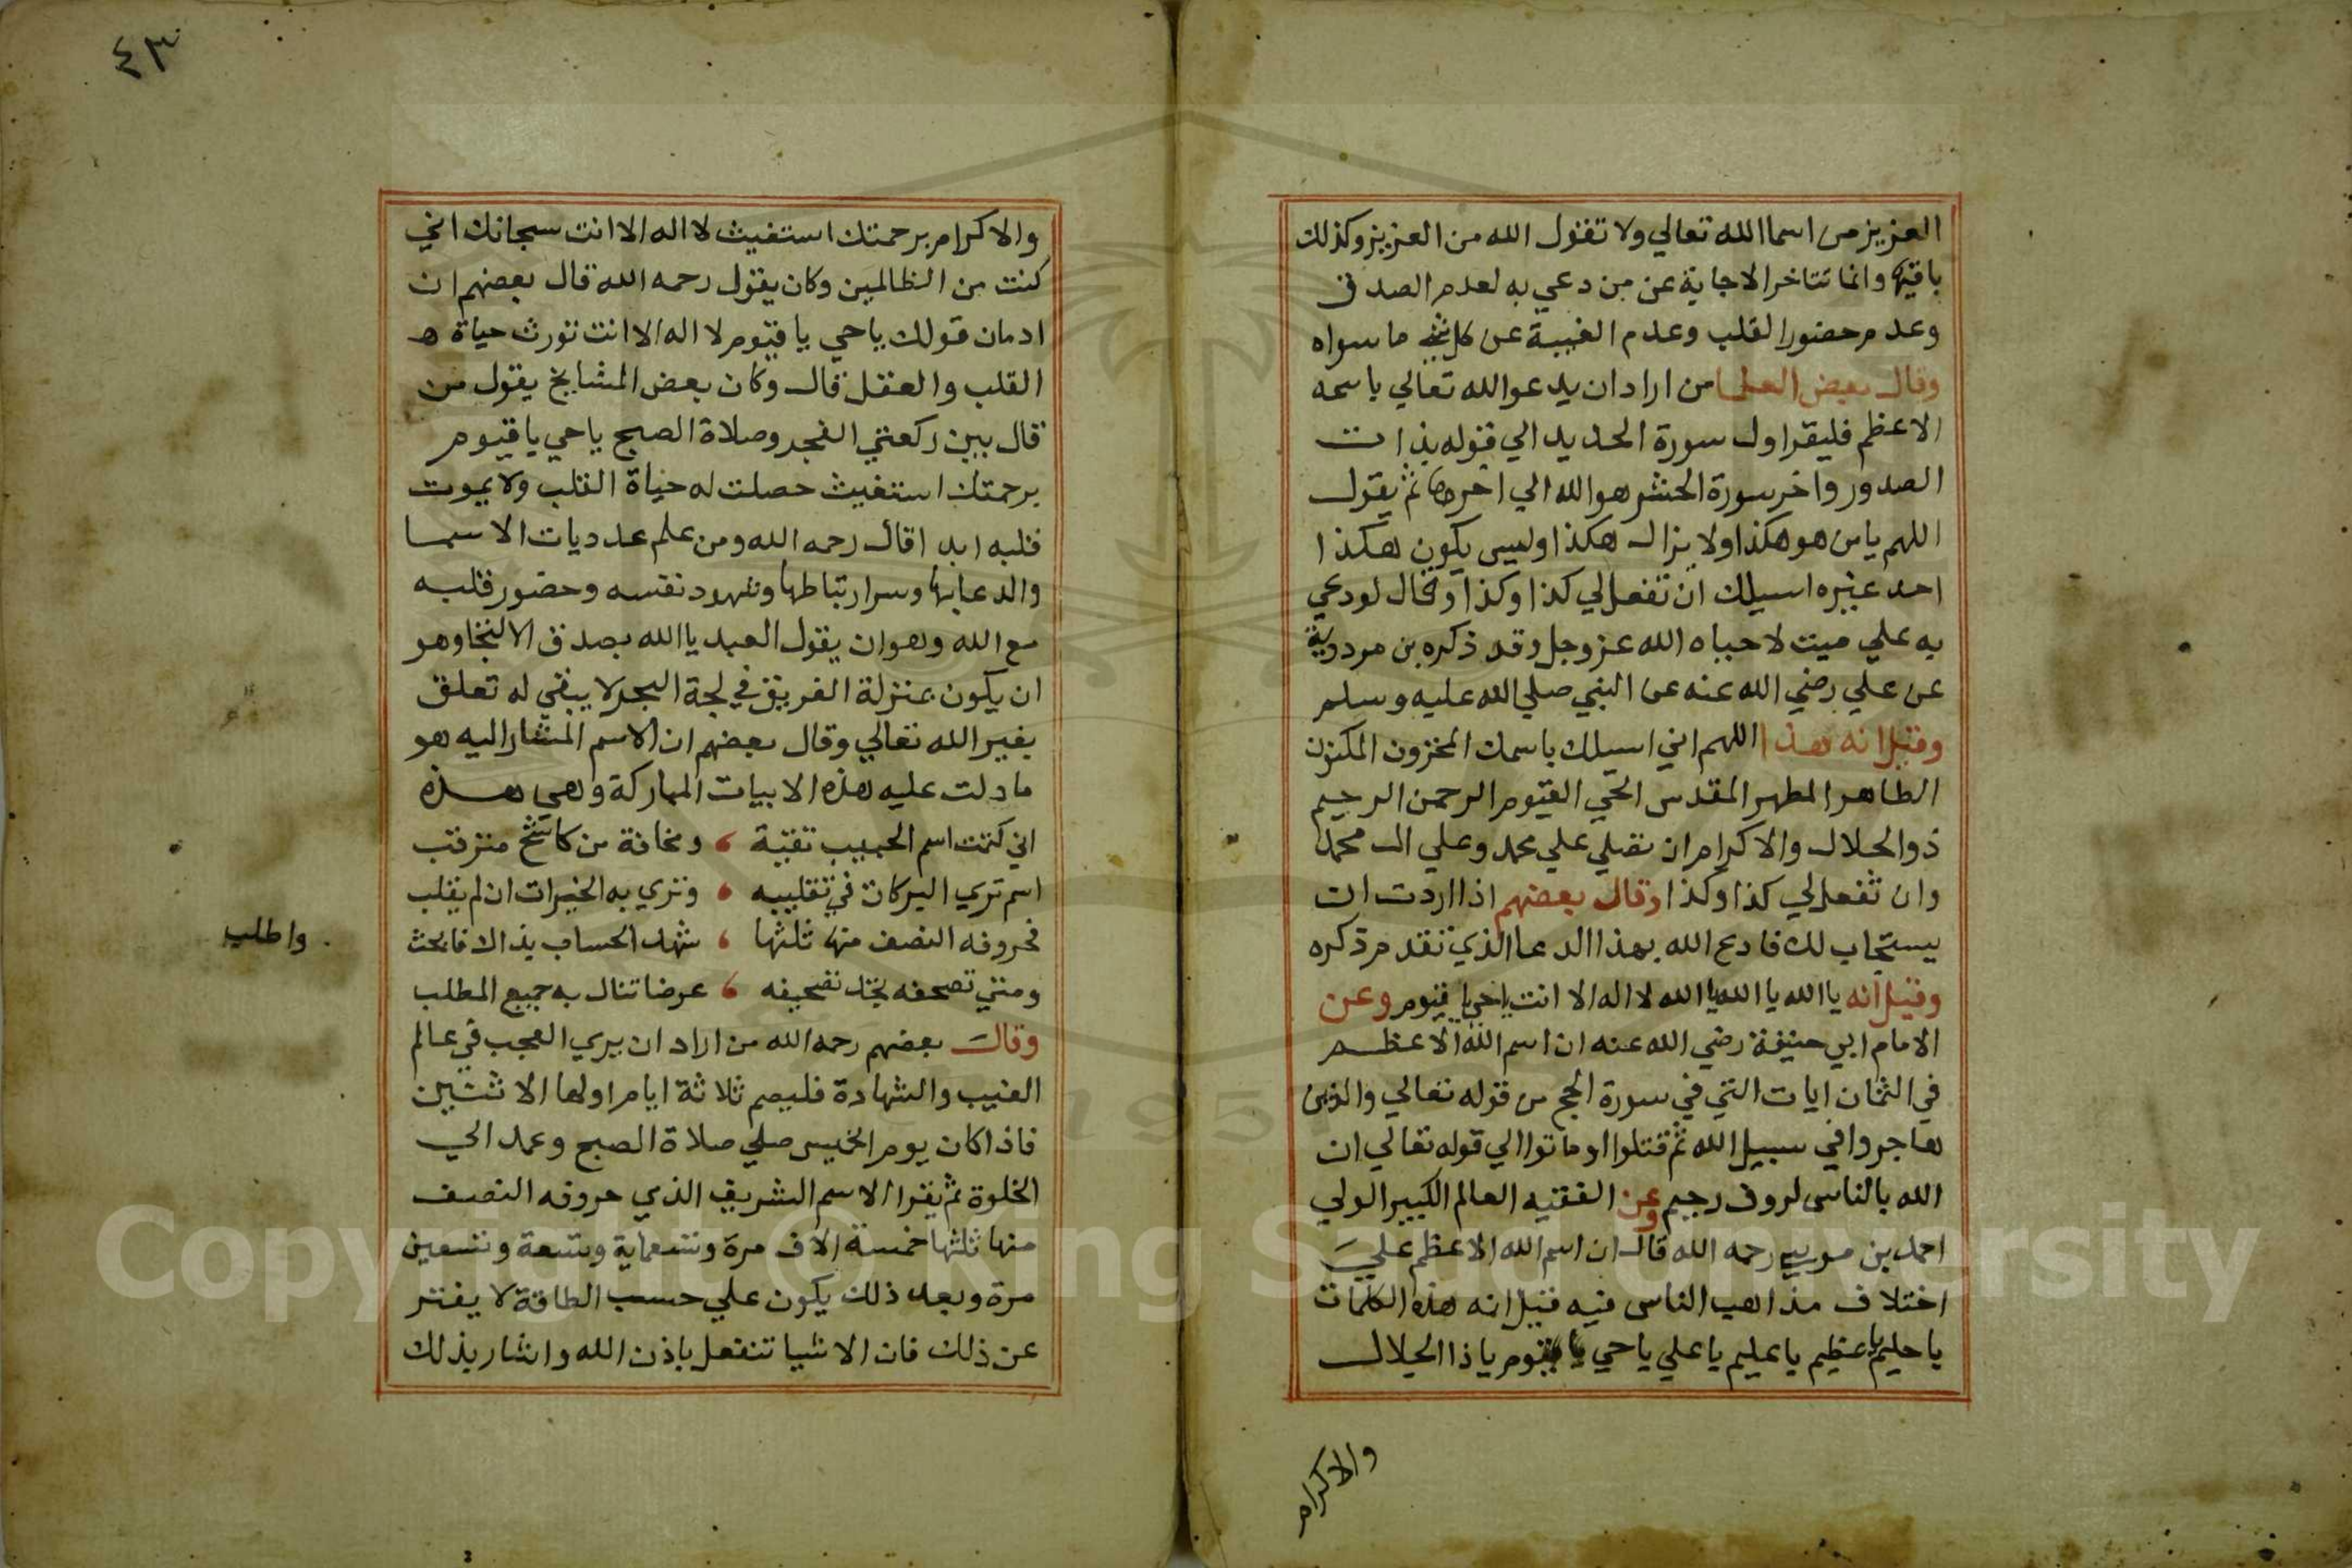 العزيز من اسما الله تعالي ولا تقول الله من العزيز وكذلك
باقيها وانما تتاخر الاجابة عن من دعي به لعدم الصدق
وعدم حضور القلب وعدم الغيبة عن كل شي ما سواه
وقال بعض العلما من اراد ان يدعو الله تعالي باسمه
الاعظم فليقرا ول سورة الحديد الي قوله بذات
الصدور واخر سورة الحشر هو الله الي اخرها ثم يقول
اللهم يا من هو هكذا ولا يزال هكذا وليس يكون هكذا
احد غيره اسيلك ان تفعل لي كذا وكذا وقال لو دعي
به علي ميت لاحياه الله عز وجل وقد ذكره بن مردوية
عن علي رضي الله عنه عن النبي صلي الله عليه وسلم
وقيل انه هذا اللهم اني اسيلك باسمك المخزون المكنون
الطاهر المطهر المقدس الحي القيوم الرحمن الرحيم
ذو الجلال والاكرام ان تصلي علي محمد وعلي ال محمد
وان تفعل لي كذا وكذا وقال بعضهم اذا اردت ان
يستجاب لك فادع الله بهذا الدعا الذي تقدم ذكره
وقيل انه يا الله يا الله يا الله لا اله الا انت يا حي يا قيوم وعن
الامام ابي حنيفة رضي الله عنه ان اسم الله الاعظم
في الثمان ايات التي في سورة الحج من قوله تعالي والذين
هاجروا في سبيل الله ثم قتلوا او ماتوا الي قوله تعالي ان
الله بالناس لروف رحيم وعن الفقيه العالم الكبير الولي
احمد بن موسي رحمه الله قال ان اسم الله الاعظم علي
اختلاف مذاهب الناس فيه فقيل انه هذه الكلمات
يا حليم يا عظيم يا عليم يا علي يا حي يا قيوم يا ذا الجلال
والاكرام
٤٣
والاكرام برحمتك استغيث لا اله الا انت سبحانك اني
كنت من الظالمين وكان يقول رحمه الله قال بعضهم ان
ادمان قولك يا حي يا قيوم لا اله الا انت تورث حياة ه
القلب والعقل قال وكان بعض المشايخ يقول من
قال بين ركعتي الفجر وصلاة الصبح يا حي يا قيوم
برحمتك استغيث حصلت له حياة القلب ولا يموت
قلبه ابدا قال رحمه الله ومن علم عدديات الاسما
والدعا بها وسر ارتباطها وشهود نفسه وحضور قلبه
مع الله وهو ان يقول العبد يا الله بصدق الالتجا وهو
ان يكون بمنزلة الغريق في لجة البحر لا يبقي له تعلق
بغير الله تعالي وقال بعضهم ان الاسم المشار اليه هو
ما دلت عليه هذه الابيات المباركة وهي هذه
اني كتمت اسم الحبيب تقية ، ومخافة من كاشح مترقب
اسم تري البركات في تقليبه ، وتري به الخيرات ان لم يقلب
فحروفه النصف منها ثلثها ، شهد الحساب بذالك فابحث
واطلب
ومتي تصحفه بخد تصحيفه ، عرضا تنال به جميع المطلب
وقال بعضهم رحمه الله من اراد ان يري العجب في عالم
الغيب والشهادة فليصم ثلاثة ايام اولها الاثنين
فاذا كان يوم الخميس صلي صلاة الصبح وعمد الي
الخلوة ثم يقرا الاسم الشريف الذي حروفه النصف
منها ثلثها خمسة الاف مرة وتسعماية وتسعة وتسعين
مرة وبعد ذلك يكون علي حسب الطاقة لا يفتر
عن ذلك فان الاشيا تنفعل باذن الله واشار بذلك
Copyright © King Saud University
195